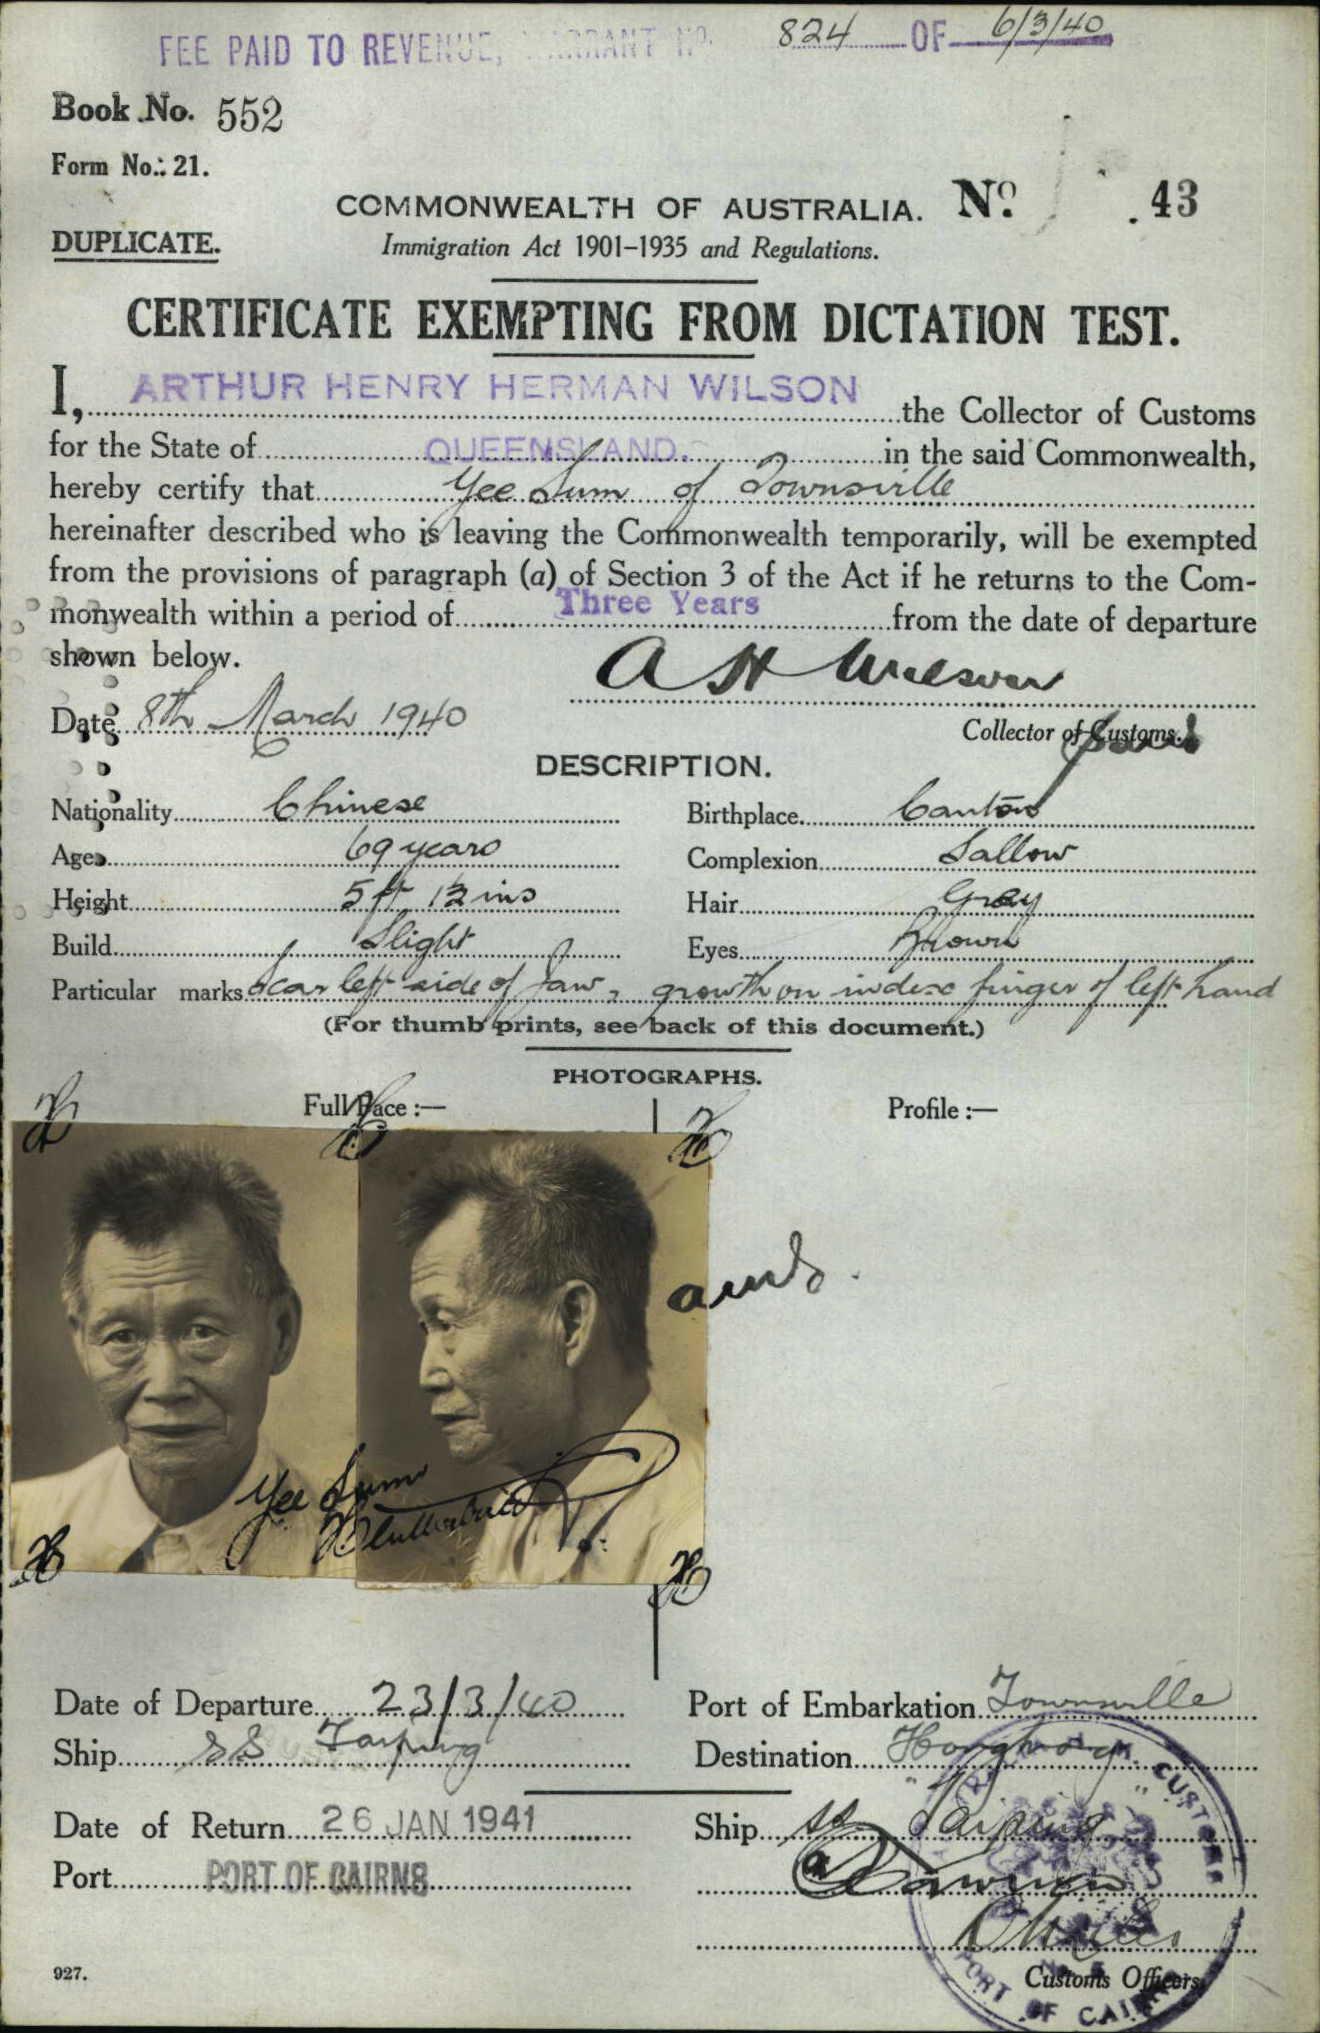 FEE PAID TO REVENUE, WARRANT No. 824 OF 6/3/40
Book No. 552
Form No. 21.
COMMONWEALTH OF AUSTRALIA. No. 43
DUPLICATE.
Immigration Act 1901–1935 and Regulations.
CERTIFICATE EXEMPTING FROM DICTATION TEST.
I, ARTHUR HENRY HERMAN WILSON the Collector of Customs
for the State of QUEENSLAND. in the said Commonwealth,
hereby certify that Yee Sum of Townsville
hereinafter described who is leaving the Commonwealth temporarily, will be exempted
from the provisions of paragraph (a) of Section 3 of the Act if he returns to the Com-
monwealth within a period of Three Years from the date of departure
shown below.
A H Wilson
Date 8th March 1940
Collector of Customs.
DESCRIPTION.
Nationality Chinese Birthplace Canton
Age 69 years Complexion Sallow
Height 5 ft 1½ ins Hair Grey
Build Slight Eyes Brown
Particular marks Scar left side of jaw, growth on index finger of left hand
(For thumb prints, see back of this document.)
PHOTOGRAPHS.
Full Face :— Profile :—
Yee Sum
Date of Departure 23/3/40 Port of Embarkation Townsville
Ship SS Taiping Destination Hongkong
Date of Return 26 JAN 1941 Ship ss "Taiping"
Port PORT OF CAIRNS
927.
Customs Officers.
CUSTOMS
PORT OF CAIRNS